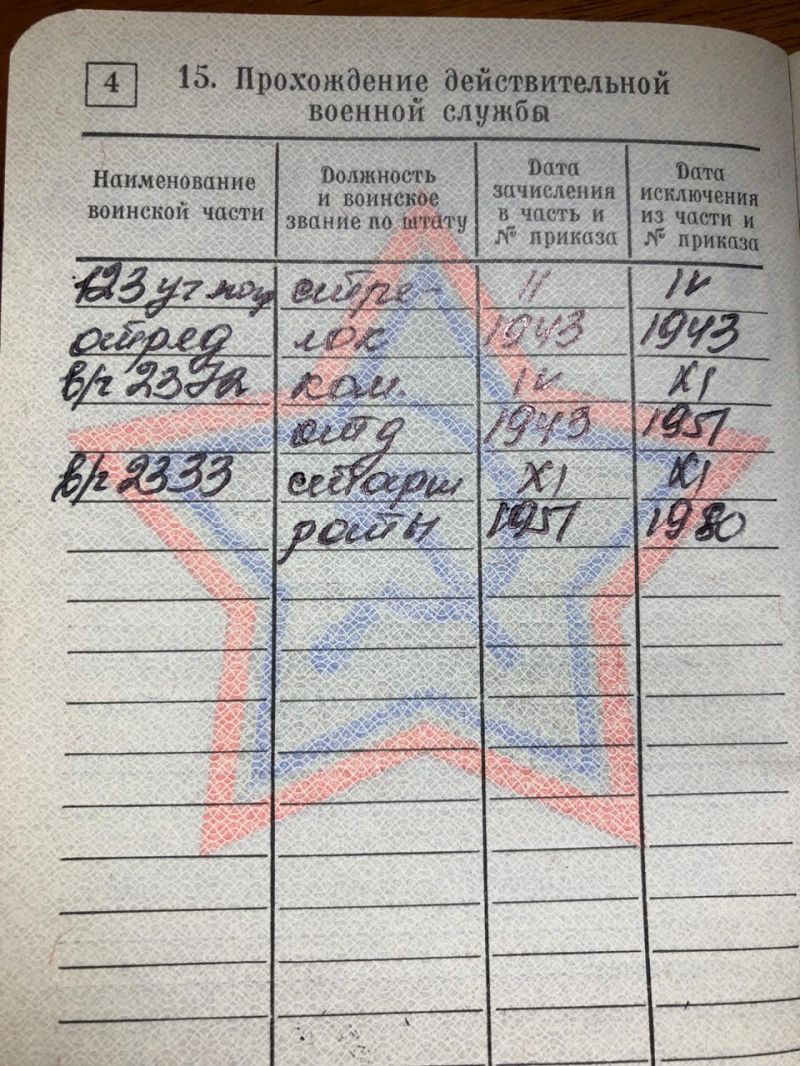 4
15. Прохождение действительной
военной службы
Наименование
воинской части
Должность
и воинское
звание по штату
Дата
зачисления
в часть и
№ приказа
Дата
исключения
из части и
№ приказа
123 уч стре- II IV
отряд лок 1943 1943
в/ч 2372 ком. IV XI
отд 1943 1951
в/ч 2333 старш XI XI
роты 1951 1980